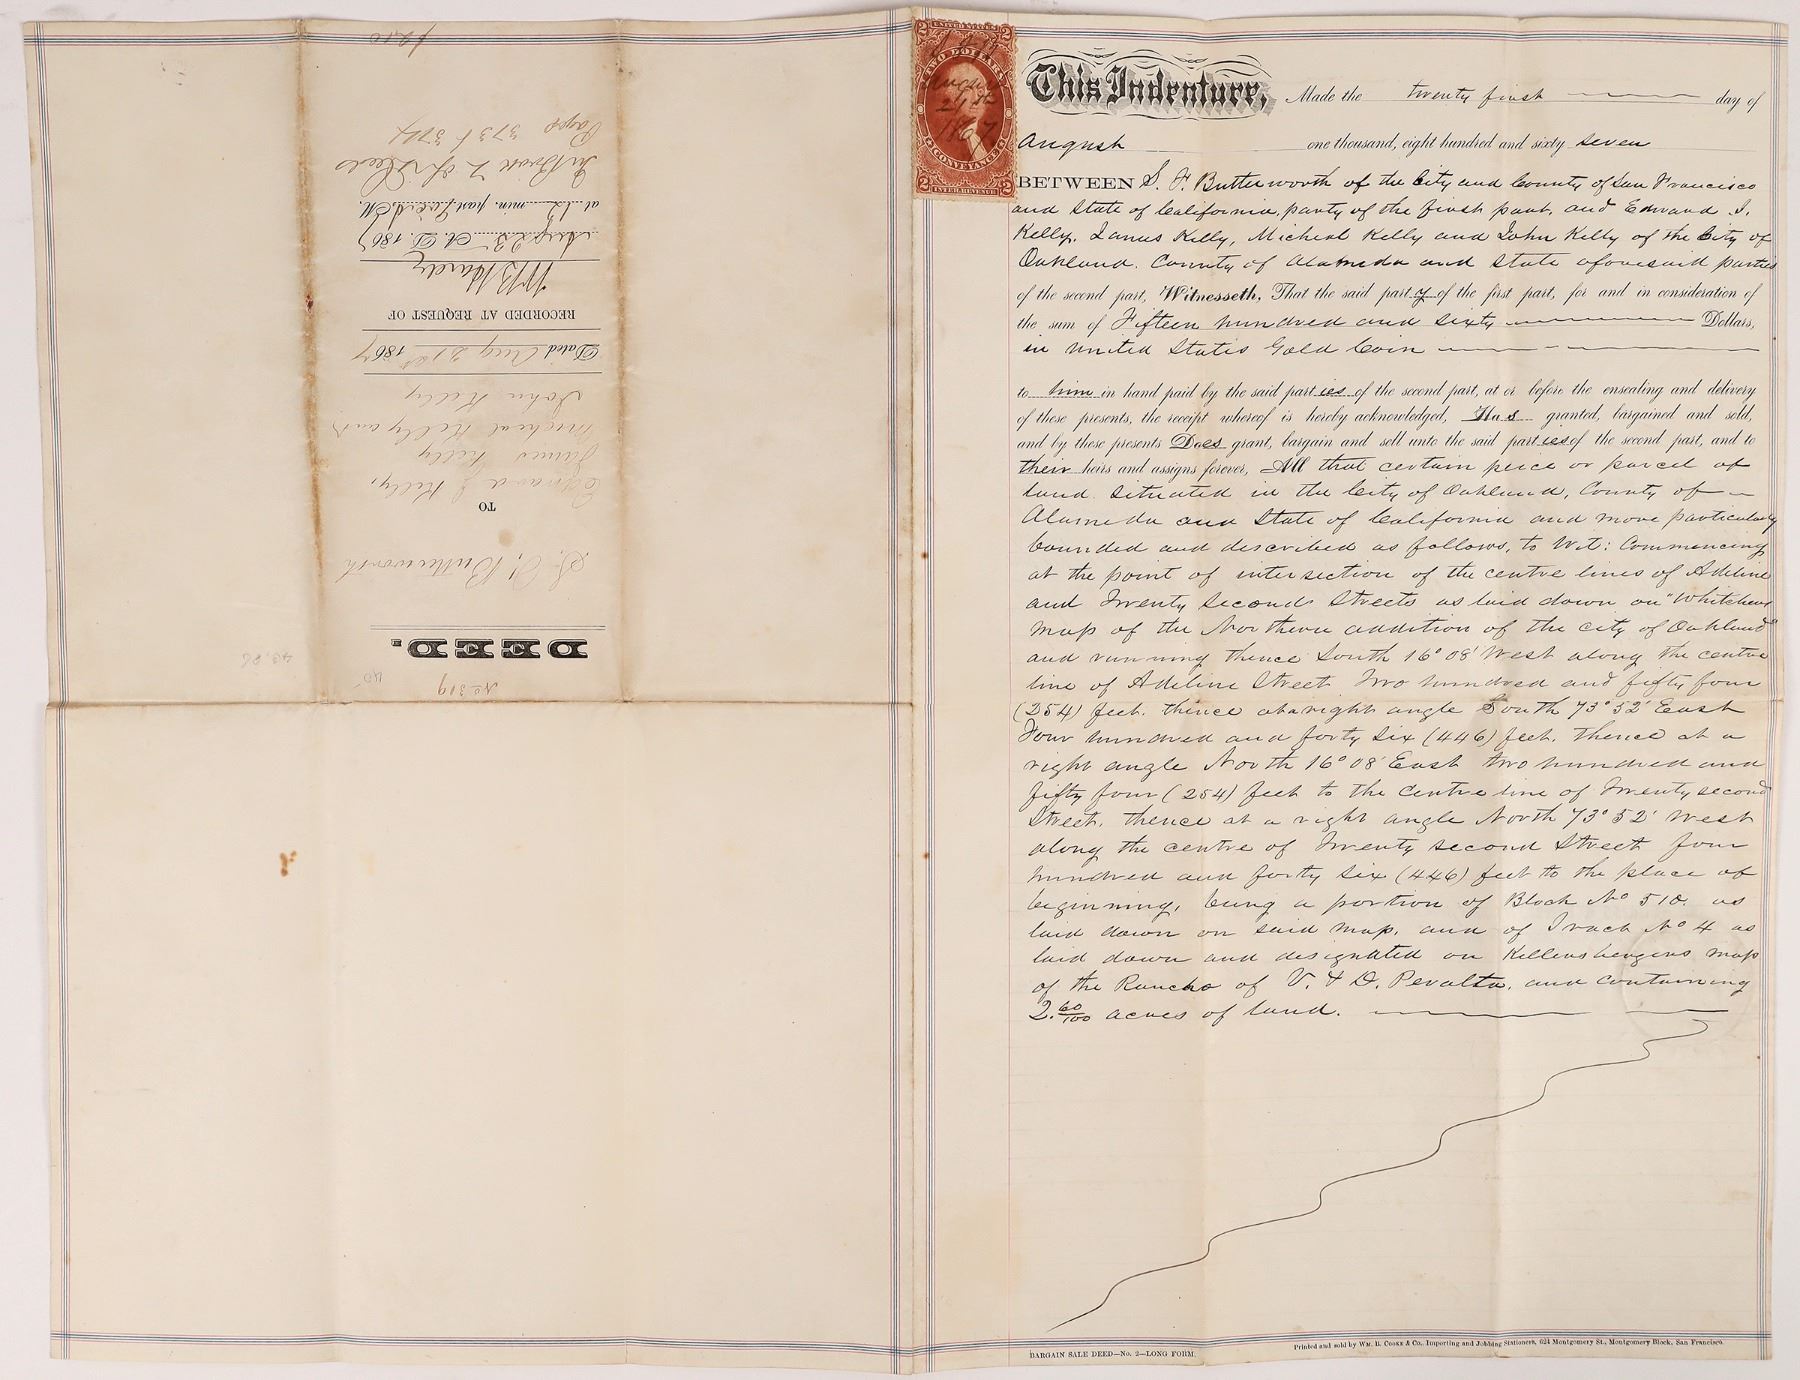 UNITED STATES
TWO DOLLARS
August
21st
1867
CONVEYANCE
INTER. REVENUE
This Indenture, Made the twenty first day of
August one thousand, eight hundred and sixty seven
BETWEEN S. F. Butterworth of the City and County of San Francisco
and State of California, party of the first part, and Edward J.
Kelly, James Kelly, Micheal Kelly and John Kelly of the City of
Oakland. County of Alameda and State aforesaid parties
of the second part, Witnesseth, That the said party of the first part, for and in consideration of
the sum of Fifteen hundred and sixty Dollars,
in United States Gold Coin
to him in hand paid by the said parties of the second part, at or before the ensealing and delivery
of these presents, the receipt whereof is hereby acknowledged, Has granted, bargained and sold,
and by these presents Does grant, bargain and sell unto the said parties of the second part, and to
their heirs and assigns forever, All that certain peice or parcel of
land situated in the City of Oakland, County of
Alameda and State of California and more particularly
bounded and described as follows, to Wit: Commencing
at the point of intersection of the centre lines of Adeline
and Twenty second Streets as laid down on "Whitchers
map of the Northern addition of the city of Oakland"
and running thence South 16° 08' West along the centre
line of Adeline Street Two hundred and fifty four
(254) feet. thence at a right angle South 73° 52' East
Four hundred and forty six (446) feet. thence at a
right angle North 16° 08' East two hundred and
fifty four (254) feet to the centre line of Twenty second
Street. thence at a right angle North 73° 52' West
along the centre of Twenty second Street four
hundred and forty six (446) feet to the place of
beginning, being a portion of Block No 510. as
laid down on said map, and of Tract No 4 as
laid down and designated on Kellersbergers map
of the Rancho of V. & D. Peralta, and containing
2.60/100 acres of land.
BARGAIN SALE DEED—No. 2—LONG FORM.
Printed and sold by WM. B. COOKE & CO., Importing and Jobbing Stationers, 624 Montgomery St., Montgomery Block, San Francisco.
No 319
40
43.86
DEED.
S. F. Butterworth
TO
Edward J Kelly,
James Kelly
Micheal Kelly and
John Kelly
Dated Aug 21st 1867
RECORDED AT REQUEST OF
W B Hardy
Aug 23 A. D. 1867
at 12 min. past M.
In Book Z of Deeds
Page 373 & 374
$2.10